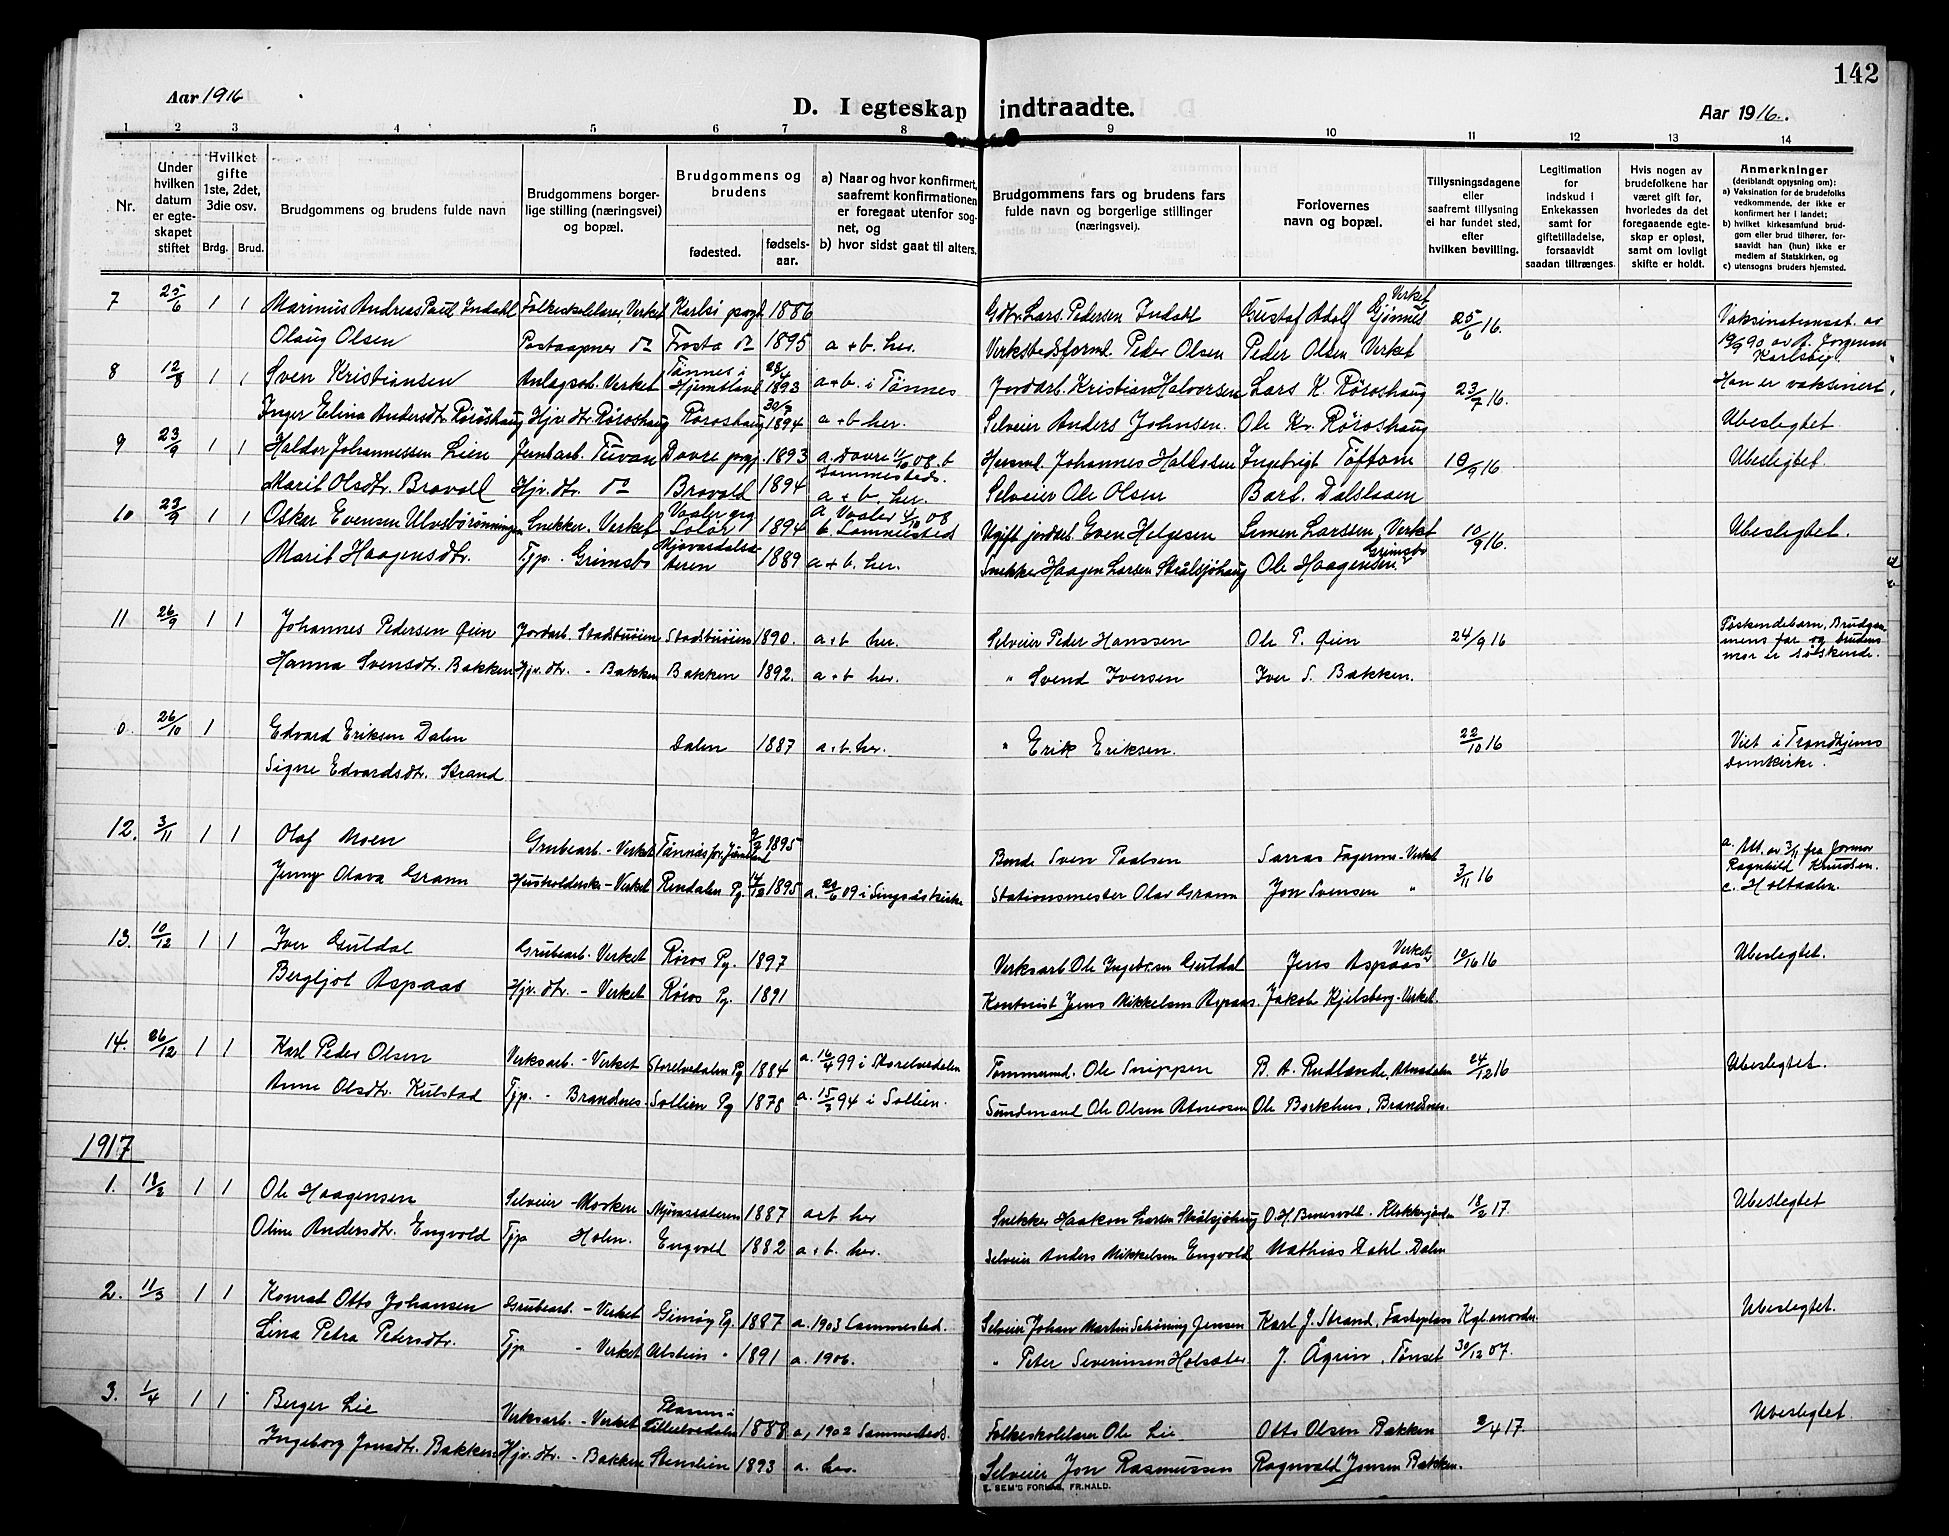 142
Aar 1916
D. I egteskap indtraadte.
Aar 1916.
1 2 3 4 5 6 7 8 9 10 11 12 13 14
Nr.
Under hvilken datum er egteskapet stiftet
Hvilket gifte 1ste, 2det, 3die osv.
Brdg. Brud.
Brudgommens og brudens fulde navn
Brudgommens borgerlige stilling (næringsvei) og bopæl.
Brudgommens og brudens
fødested.
fødselsaar.
a) Naar og hvor konfirmert, saafremt konfirmationen er foregaat utenfor sognet, og
b) hvor sidst gaat til alters.
Brudgommens fars og brudens fars fulde navn og borgerlige stillinger (næringsvei).
Forlovernes navn og bopæl.
Tillysningsdagene eller saafremt tillysning ei har fundet sted, efter hvilken bevilling.
Legitimation for indskud i Enkekassen samt for giftetilladelse, forsaavidt saadan tiltrænges.
Hvis nogen av brudefolkene har været gift før, hvorledes da det foregaaende egteskap er opløst, samt om lovligt skifte er holdt.
Anmerkninger
(deriblandt opjysning om):
a) Vaksination for de brudefolks vedkommende, der ikke er konfirmert her i landet;
b) hvilket kirkesamfund brudgom eller brud tilhører, forsaavidt han (hun) ikke er medlem af Statskirken, og
c) utensogns bruders hjemsted.
7 25/6 1 1 Marinus Andreas Paul Indahl Folkeskolelærer, Verket Karlsø pgd. 1886 Gdbr. Lars Pedersen Indahl Gustaf Adolf Gjønnes Verket 25/6 16. Vaksinationsat. av
Olaug Olsen Postaapner do Frosta do 1895 a + b. her. Verksbedsforml. Peder Olsen Peder Olsen Verket 19/9 90 av A. Jørgensen Karlsøy.
8 12/8 1 1 Sven Kristiansen Anlagsarb. Verket Tännes i Hjemtland 28/4 1893 a + b. i Tännes Jordarb. Kristian Halvorsen Lars K. Røroshaug 23/7 16. Han er vaksinert
Inger Elina Andersdtr. Røroshaug Hjv. dtr. Røroshaug Røroshaug 30/7 1894 a + b her. Selveier Anders Johnsen. Ole Kr. Røroshaug Ubeslegtet
9 23/9 1 1 Haldor Johannessen Lien Jernbarb. Tuvan Dovre pgj. 1893 a. Dovre 11/10 08. b sammesteds. Husml. Johannes Haldsden Ingebrigt Toftom 10/9 16. Ubeslegtet.
Marit Olsdtr. Bravoll Hjv. dtr. do Bravold 1894 a + b. her. Selveier Ole Olsen Barb. Dalslaaen
10 23/9 1 1 Oskar Evensen Ulvsbørønningen Snekker. Verket Vaaler pgd Solør 1894 a Vaaler 4/10 08 b. sammested Ugift jordarb. Even Helgesen Simen Larssen, Verket 10/9 16. Ubeslegtet.
Marit Haagensdtr. Tjp. Grimsbo Mjovasdalssæteren 1889 a + b. her. Snekker Haagen Larsen Strålsjøhaug Ole Haagensen Grimsbo
11 26/9 1 1 Johannes Pedersen Øien Jordarb. Stadsbuøien Stadsbuøien 1890. a + b her. Selveier Peder Hanssen Ole P. Øien 24/9 16 Søskendebarn, Brudgommens far og brudens mor er søskende.
Hanna Svensdtr. Bakken Hjv. dtr. - Bakken Bakken 1892. a + b her. " Svend Iversen Iver S. Bakken.
0. 26/10 1 Edvard Eriksen Dalen Dalen 1887 a + b. her. " Erik Eriksen. 22/10 16 Viet i Trondhjems Domkirke.
Signe Edvardsdtr. Strand
12. 3/11 1 1 Olaf Moen Grubearb. - Verket Tännäs fors. Jämtland 9/9 1895 Bonde Sven Paalsen Sarras Fagermo - Verket 3/11 16 a. Att. av 3/11 fra Jormor Ragnhild Knudsen.
Jenny Olava Gramm Husholderske - Verket Rendalen Pg. 14/12 1895 a. 20/6 09 i Singsås kirke Stationsmester Olav Gramm Jon Svensen " c. Holtaalen.
13. 10/12 1 1 Iver Guldal Grubearb. Verket Røros Pg. 1897 Verksarb Ole Ingebr.sen Guldal Jens Aspaas Verket 10/12 16 Ubeslegtet.
Bergljot Aspaas Hjv. dtr. - Verket Røros Pg. 1891 Kontorist Jens Mikkelsen Aspaas Jakob Kjelsberg - Verket.
14. 26/12 1 1 Karl Peder Olsen Verksarb. - Verket Storelvedalen Pg 1884 a. 16/4 99 i Storelvedalen Tømmermd. Ole Snippen B. A. Rudland, Atnadalen 24/12 16 Ubeslegtet.
Anne Olsdtr. Kulstad Tjp. - Brandnes. Sollien Pg 1878 a. 15/3 94 i Sollien. Sundmand Ole Olsen Atneosen Ole Borkhus, Brandnes.
1917
1. 18/2 1 1 Ole Haagensen Selveier - Morken Mjovassæteren 1887 a+b her Snekker Haakon Larsen Strålsjøhaug O. H. Brnesvold. Klokkergården 18/2 17 Ubeslegtet
Oline Andersdtr. Engvold Tjp Holen. Engvold 1882 a + b. her. Selveier Anders Mikkelsen Engvold Mathias Dahl. Dalen
2. 11/3 1 1 Konrad Otto Johansen Grubearb. - Verket Gimsøy Pg. 1887 a. 1903 Sammested. Selveier Johan Martin Schøning Jensen Karl J. Strand, Fasteplass Kgl. anordn. Ubeslegtet.
Lina Petra Petersdtr. Tjp - Verket Alstein " 1891 a. 1906. " Peter Severinsen Holsæter J. Ågrim, Tønset 30/12 07.
3. 1/4 1 1 Berger Lie Verksarb. - Verket Lilleelvedalen 1888 a, 1902 Sammesteds. Folkeskolelærer Ole Lie Otto Olsen Bakken 2/4 17. Ubeslegtet.
Ingeborg Jonsdtr. Bakken Hjv. dtr. - Bakken Stenslien 1893 a. her. Selveier Jon Rasmussen Ragnvald Jonsen Bakken.
E. SEM'S FORLAG, FR.HALD.